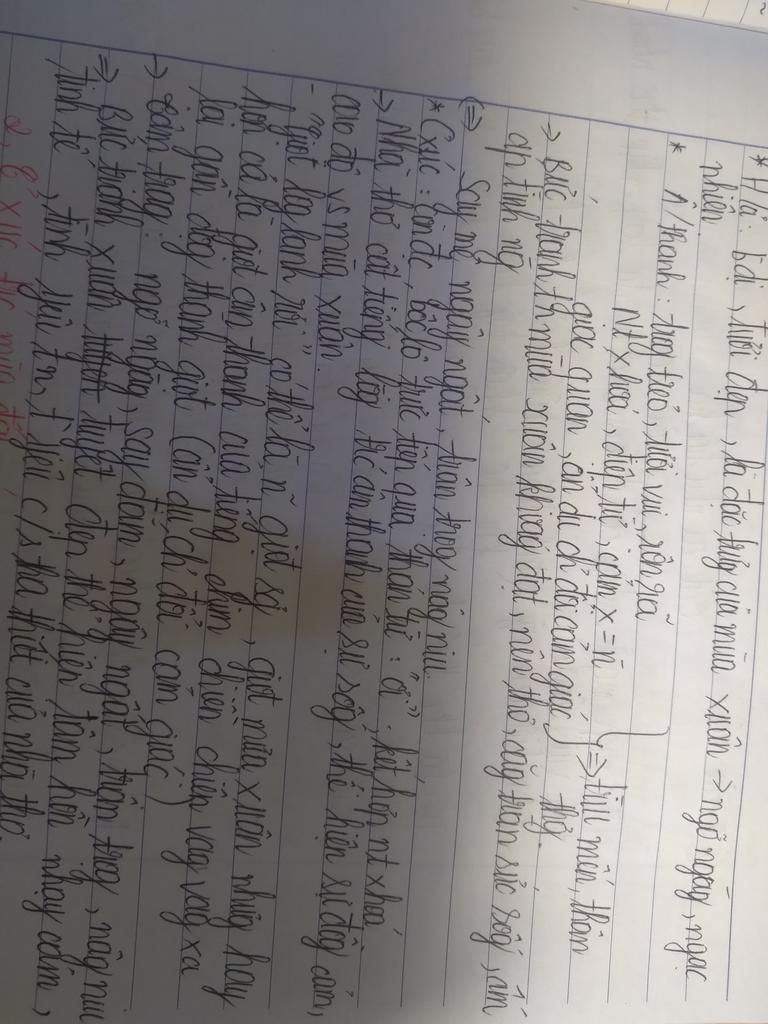 * H/ả: bdị, tươi đẹp, là đặc trưng của mùa xuân → ngỡ ngàng, ngạc
nhiên
* Â/thanh: trog trẻo, tươi vui, rộn rã
Nt x hoá, điệp từ, cảm x = n
giác quan, ẩn dụ cđ đổi cảm giác } => trìu mến, thân
thg
→ Bức tranh th mùa xuân khoág đạt, nên thơ, căg tràn sức sốg, ấm
áp tình ng
(=> Say mê, ngây ngất, trân trọg, nâg niu
* Cxúc: lôn đc, bộc lộ trực tiếp qua thán từ: "ơi", kết hợp nt x hoá
→ Nhà thơ cất tiếng lòg trc âm thanh của sự sốg, thể hiện sự đồg cảm,
giao độ vs mùa xuân.
- "giọt log lanh rơi" có thể là ~ giọt sg, giọt mưa xuân nhưg hay
hơn cả là giọt âm thanh của tiếng chim chiền chiện vag vọg xa
lại gần đọg thành giọt (ẩn dụ cđ đổi cảm giác)
→ Cảm trạg: ngỡ ngàg, say đắm, ngây ngất, trân trọg, nâg niu
=> Bức tranh xuân tuyệt đẹp thể hiện tâm hồn nhạy cảm,
tinh tế, tình yêu tn, t yêu c/s tha thiết của nhà thơ
2, C xúc trc mùa